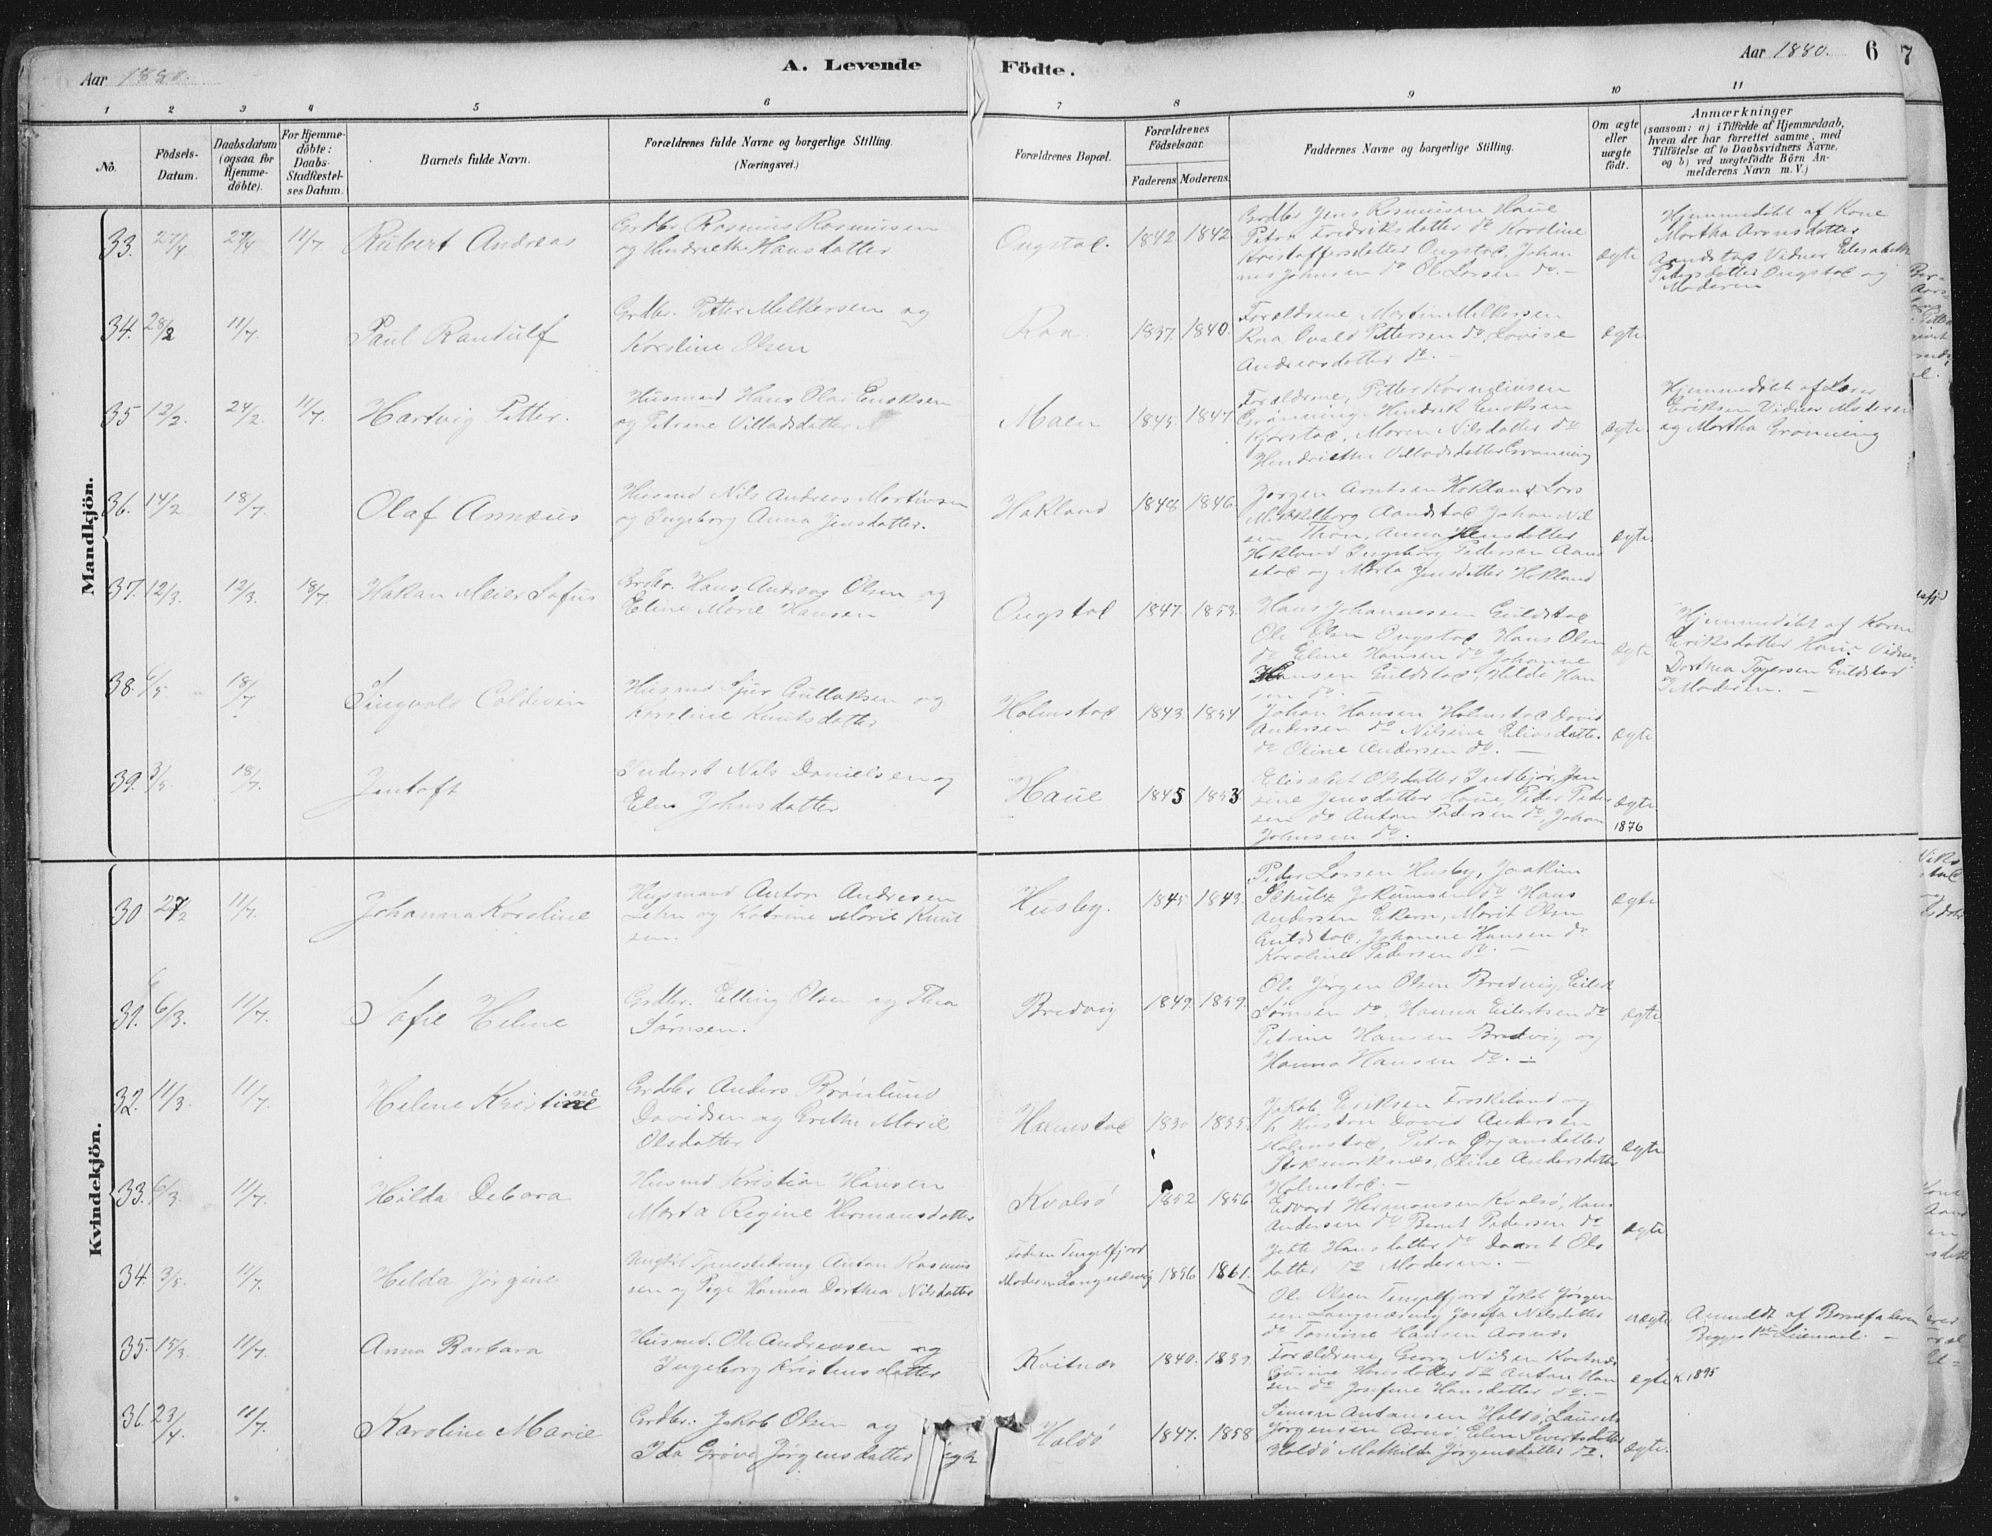 Aar 1880.
A. Levende
Födte.
Aar 1880.
6
7
1 2 3 4 5 6 7 8 9 10 11
No.
Födsels-
Datum.
Daabsdatum
(ogsaa for
Hjemme-
döbte).
For Hjemme-
döbte:
Daabs-
Stadfæstel-
ses Datum.
Barnets fulde Navn.
Forældrenes fulde Navne og borgerlige Stilling.
(Næringsvei.)
Forældrenes Bopæl.
Forældrenes
Födselsaar.
Faderens.
Moderens.
Faddernes Navne og borgerlige Stilling.
Om ægte
eller
uægte
födt.
Anmærkninger
(saasom: a) i Tilfælde af Hjemmedaab,
hvem der har forrettet samme, med
Tilföielse af to Daabsvidners Navne,
og b) ved uægtefödte Börn An-
melderens Navn m. V.)
Mandkjön.
33. 27/4 29/4 11/7 Rubert Andreas
Grdbr Rasmus Rasmussen
og Hendrikke Hansdatter
Ongstad. 1842 1842
Grdbr Jens Rasmussen Haue
Petra Fredriksdatter do Karoline
Kristoffersdatter Ongstad, Johan
nes Johnsen do Ole Larsen do. –
ægte
Hjemmedøbt af Kone
Martha Aronsdatter
Aandstad Vidner Elisabeth
Pedersdatter Ongstad og
Moderen
34. 28/2 11/7 Paul Randulf
Grdbr. Petter Melkersen og
Karoline Olsen
Raa. 1837. 1840.
Forældrene Martin Melkersen
Raa Ovald Pettersen do, Lovise
Andreasdatter do. –
ægte
35 12/2. 24/2 11/7. Hartvig Petter.
Husmand Hans Olai Eriksen
og Petrine Villadsdatter
Maen 1845. 1847
Forældrene, Petter Korneliusen
Grønning, Hendrik Eriksen
Kjørstad, Maren Nilsdatter do
Hendrikke Villadsdatter Grønning
ægte.
Hjemmedøbt af Lærer
Eriksen Vidner Moderen
og Martha Grønning
36. 14/2 18/7. Olaf Annæus
Husmd Nils Andreas Martinsen
og Ingeborg Anna Jensdatter.
Hokland 1848 1846.
Jørgen Arntsen Hokland Lars
Mikkelborg Aandstad Johan Nil
sen Thøn, Anna Jensdatter
Hokland Ingeborg Pedersen Aand
stad og Marta Jensdatter Hokland
ægte.
37. 12/3. 12/3. 18/7. Hakan Meier Sofus
Grdbr. Hans Andreas Olsen og
Eline Marie Hansen
Ongstad 1847. 1853.
Hans Johannessen Guldstad
Ole Olsen Ongstad, Hans Olsen
do Eline Hansen do Johanne
Hansen Guldstad, Hilda Han
sen do. –
ægte
Hjemmedøbt af Karen
Eriksdatter Haue Vidner
Dorthea Guldstad
Moderen. –
38. 18/7
Husmd Sjur Gullaksen og
Karoline Knutsdatter
Holmstad 1843. 1854
Johan Hansen Holmstad David
Andersen do Nilsine Eliasdatter
do Oline Andersen do. –
ægte
39. 3/5. 18/7. Jentoft
Inderst Nils Danielsen og
Elen Johnsdatter
Haue 1845 1853
Elisabet Olsdatter Indbjør, Jen
sine Jensdatter Haue, Peder Peder
sen do Anton Pedersen do, Johan
Johnsen do.
ægte
1876
Kvindekjön.
30 27/2 11/7. Johanna Karoline
Husmand Anton Andresen
Lehn og Katrine Marie Knut
sen.
Husby. 1845 1843.
Peder Larsen Husby, Joakim
Schultz Jokumsen do Hans
Andersen Ekern, Marit Olsen
Guldstad, Johanne Hansen do
Karoline Pedersen do. –
ægte
31. 6/3. 11/7. Sofie Helene
Grdbr. Elling Olsen og Thea
Sørnsen.
Bredvig 1849. 1859.
Ole Jørgen Olsen Bredvig, Eilert
Sørnsen do, Hanna Eilertsen do
Petrine Hansen Bredvig og
Hanna Hansen do. –
ægte
32. 11/3. 11/7. Helene Kristine
Grdbr Anders Brønlund
Davidsen og Grethe Marie
Olsdatter
Holmstad 1830 1835.
Jakob Eriksen Froskeland og
h Hustru David Andersen
Holmstad, Petra Ørjansdatter
Stokmarknæs, Oline Andersdatter
Holmstad. –
ægte
33. 6/3. 11/7. Hilda Debora
Husmd Kristian Hansen
Marta Regine Hermansdatter
Kvalsö 1852 1856
Edvard Hermansen Kvalsö, Hans
Andersen do Berit Pedersen do
Jette Hansdatter do Daaret Ols
datter do Moderen. –
ægte
34. 3/5. 11/7. Hilda Jørgine
Ungkl Tjenestedreng Anton Rasmus
sen og Pige Hanna Dorthea Nilsdatter
Faderen Tengelfjord
Moderen Langnæsvig 1856 1861.
Ole Olsen Tengelfjord Jakob Jørgen
sen Langnæsvig Josefa Nilsdatter
do Tomine Hansen
uægte
Anmeldt af Barnefaderen
35. 15/3. 11/7. Anna Barbara
Husmd. Ole Andreasen og
Ingeborg Kristensdatter
Kvitnæs 1840. 1839.
Forældrene, Georg Nilsen Kvitnæs
Hansdatter do Anton Han
sen do Josefine Hansdatter do. –
ægte
k. 1895
36. 23/4 11/7. Karoline Marie
Grdbr. Jakob Olsen og
Ida Grøva Jørgensdatter
Haldö 1847. 1858
Simon Antonsen Haldö, Laurits
Jørgensen Arnö, Elen Sivertsdatter
Haldö Mathilde Jørgensdatter do.
ægte.